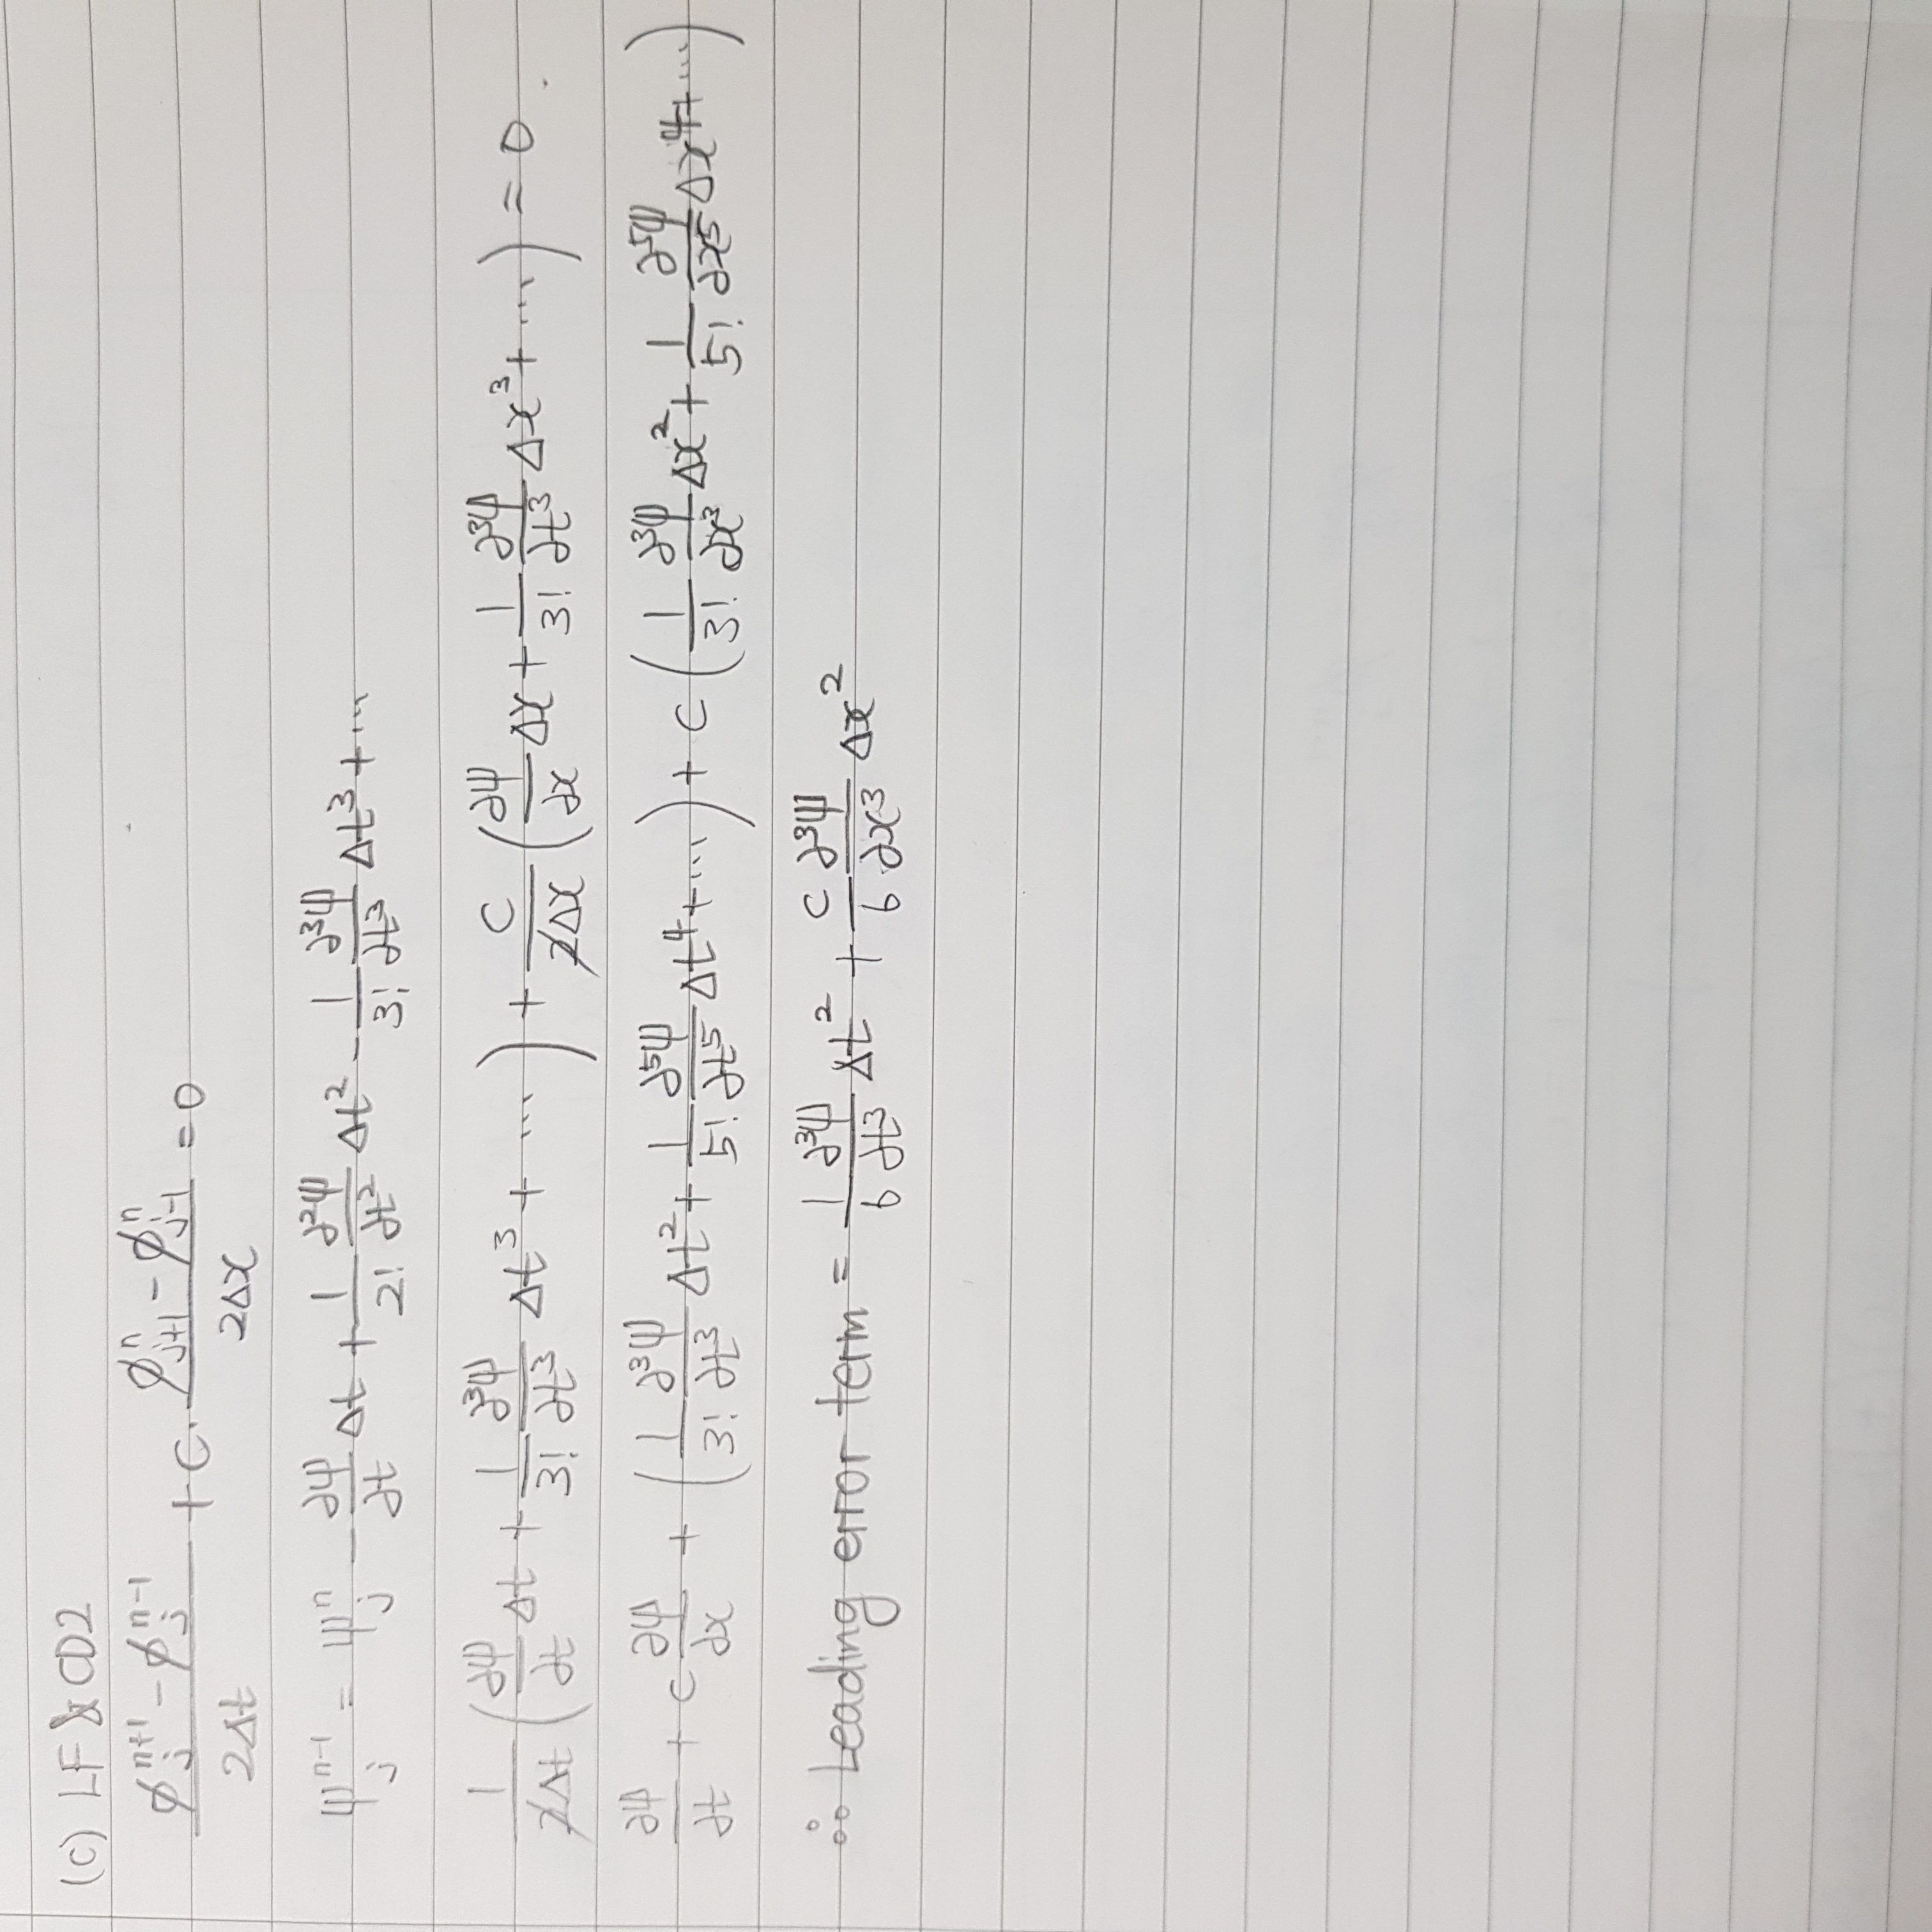 (c) LF & CD2
\frac{\phi_j^{n+1} - \phi_j^{n-1}}{2Δt} + c \cdot \frac{\phi_{j+1}^n - \phi_{j-1}^n}{2Δx} = 0
ψ_j^{n-1} = ψ_j^n - \frac{∂ψ}{∂t} Δt + \frac{1}{2!} \frac{∂^2ψ}{∂t^2} Δt^2 - \frac{1}{3!} \frac{∂^3ψ}{∂t^3} Δt^3 + ...
\frac{1}{\cancel{2}Δt} \left( \frac{∂ψ}{∂t} Δt + \frac{1}{3!} \frac{∂^3ψ}{∂t^3} Δt^3 + ... \right) + \frac{c}{\cancel{2}Δx} \left( \frac{∂ψ}{∂x} Δx + \frac{1}{3!} \frac{∂^3ψ}{∂t^3} Δx^3 + ... \right) = 0.
\frac{∂ψ}{∂t} + c \frac{∂ψ}{∂x} + \left( \frac{1}{3!} \frac{∂^3ψ}{∂t^3} Δt^2 + \frac{1}{5!} \frac{∂^5ψ}{∂t^5} Δt^4 + ... \right) + c \left( \frac{1}{3!} \frac{∂^3ψ}{∂x^3} Δx^2 + \frac{1}{5!} \frac{∂^5ψ}{∂x^5} Δx^4 + ... \right)
∴ Leading error term = \frac{1}{6} \frac{∂^3ψ}{∂t^3} Δt^2 + \frac{c}{6} \frac{∂^3ψ}{∂x^3} Δx^2